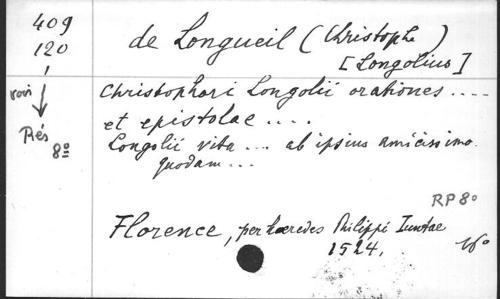 409
120
de Longueil (Christophe)
[Longolius]
voir
Rés
8º
Christophori Longolii orationes ....
et epistolae ....
Longolii vita ... ab ipsius amicissimo
quodam ...
RP 8º
Florence, per haeredes Philippi Iuntae
1524.